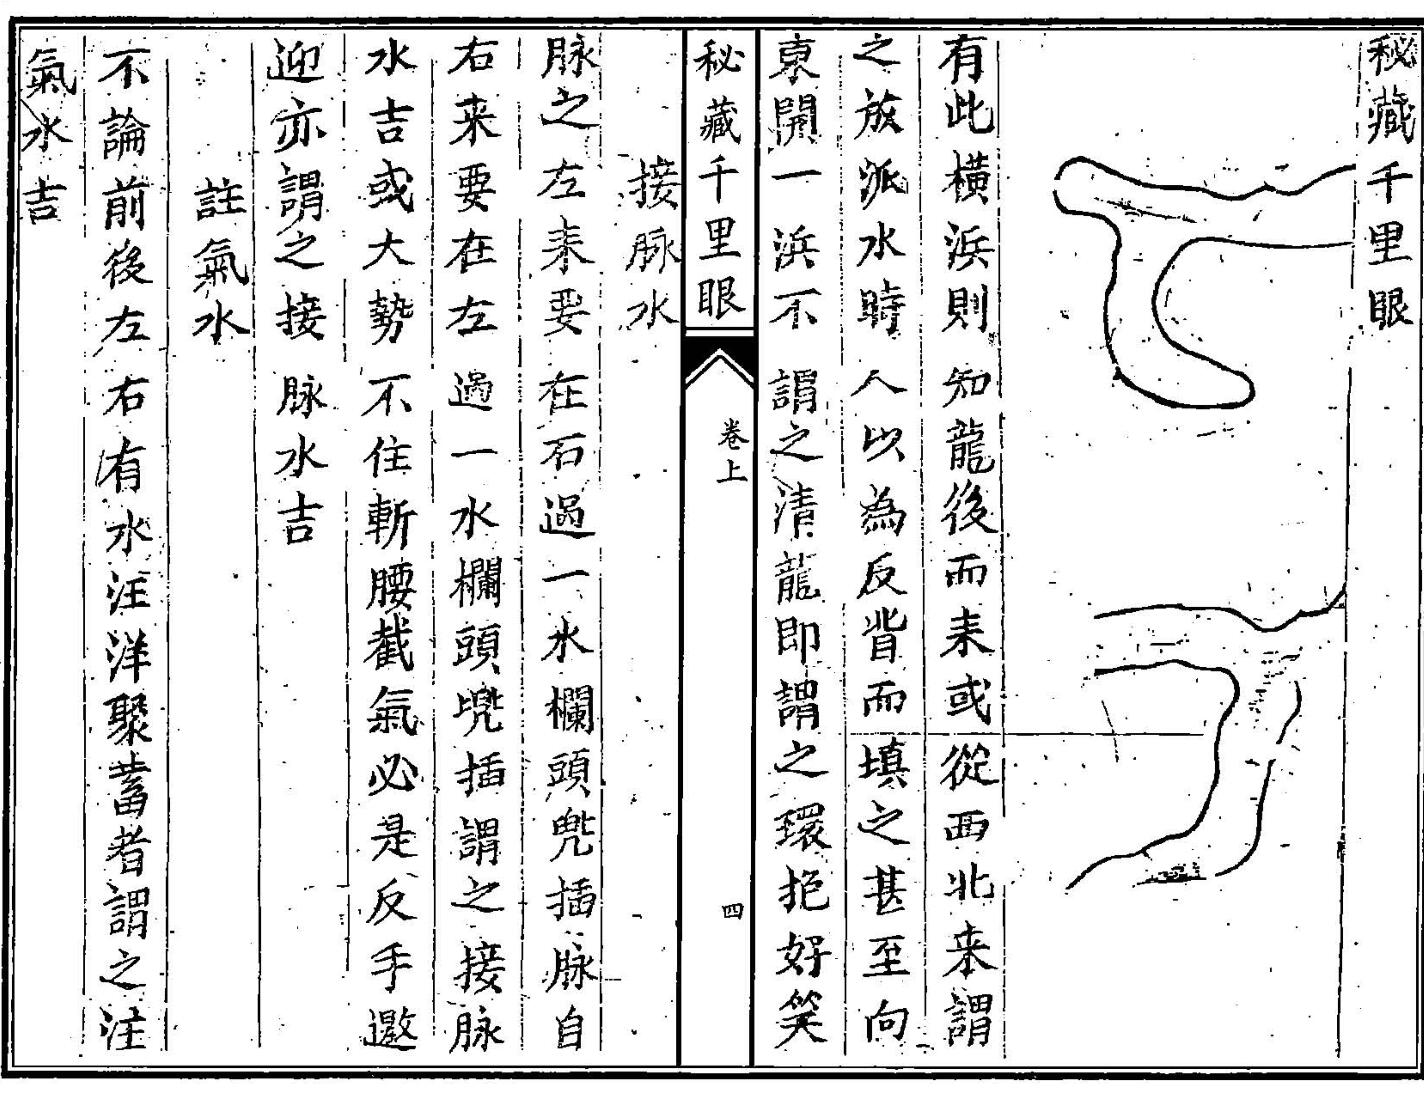 秘藏千里眼
有此橫浜則知龍後而来或從西北来謂
之放派水時人以為反背而填之甚至向
東開一浜不謂之清龍即謂之環抱好笑
秘藏千里眼
卷上
四
接脉水
脉之左来要在右過一水欄頭兠插脉自
右来要在左過一水欄頭兠插謂之接脉
水吉或大勢不住斬腰截氣必是反手邀
迎亦謂之接脉水吉
註氣水
不論前後左右有水汪洋聚蓄者謂之注
氣水吉